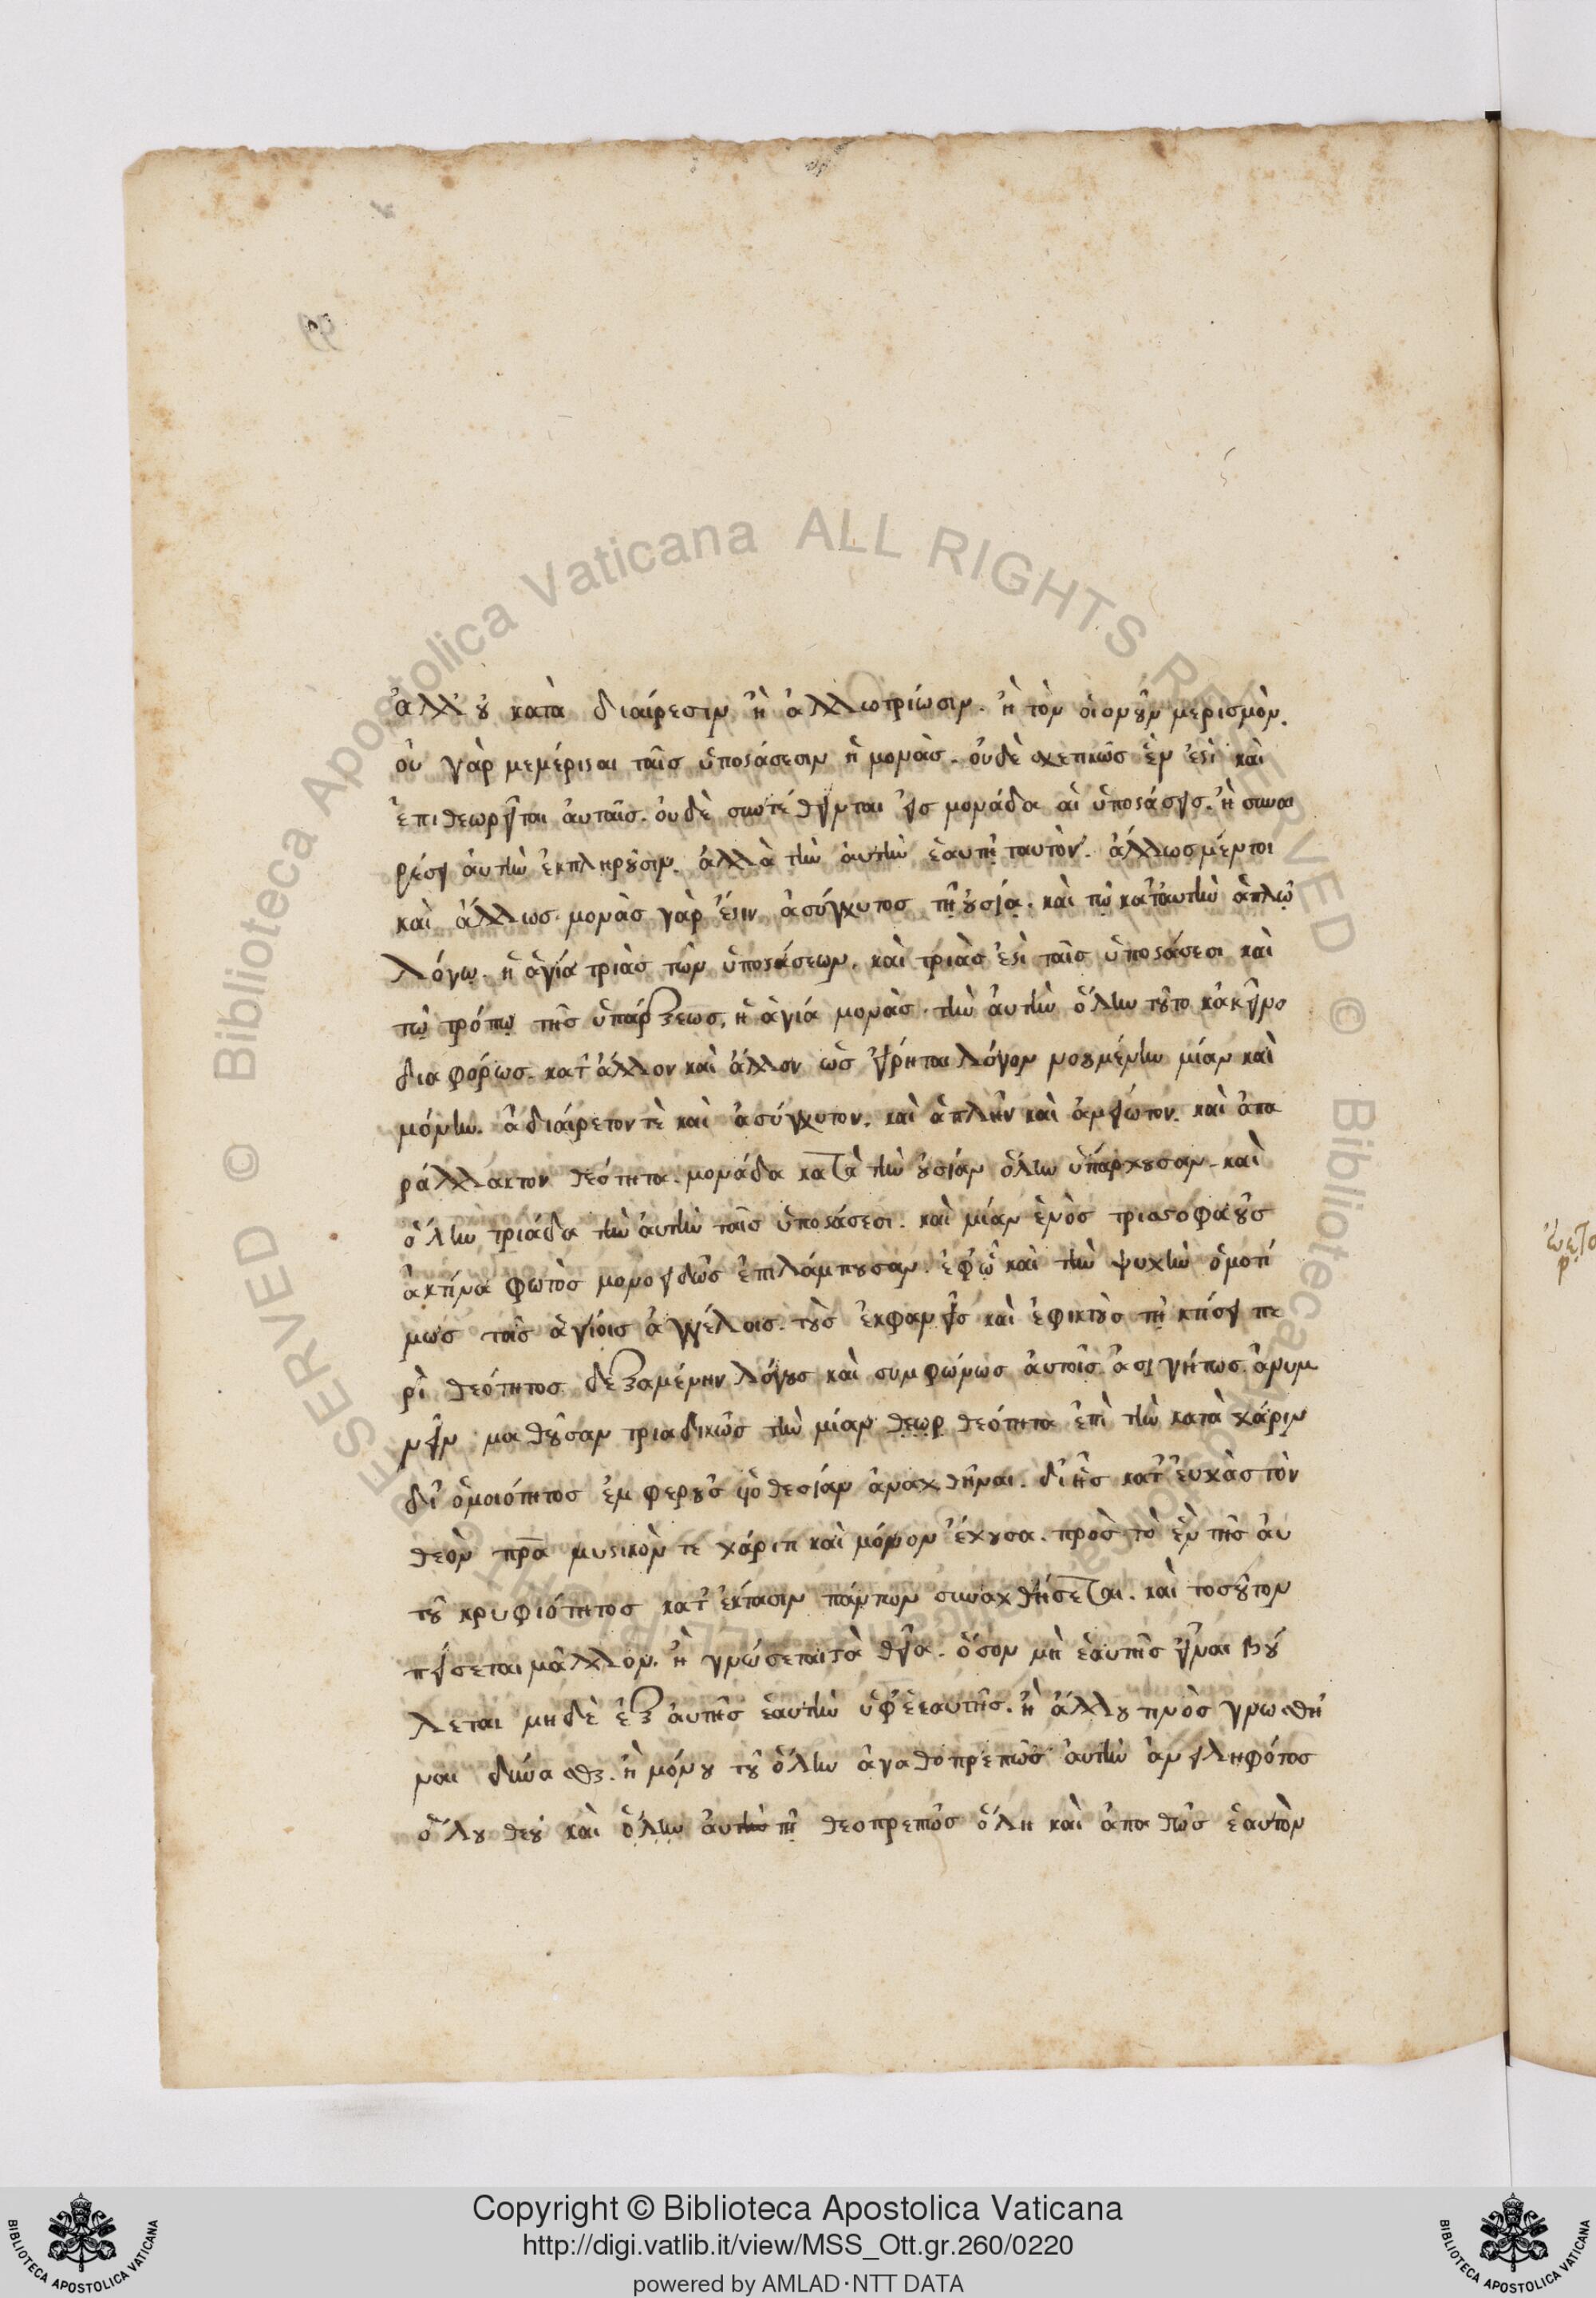 ἀλλ' οὐ κατὰ διαίρεσιν ἢ ἀλλοτρίωσιν. ἢ τὸν οἱονοῦν μερισμὸν.
οὐ γὰρ μεμέρισται ταῖς ὑποστάσεσιν ἡ μονὰς. οὐδὲ σχετικῶς ἐν ἐστὶ καὶ
ἐπιθεωρεῖται αὐταῖς. οὐδὲ συντέθεινται εἰς μονάδα αἱ ὑποστάσεις. ἢ συναι
ρέσει αὐτὴν ἐκπληροῦσιν. ἀλλὰ τὴν αὐτὴν ἑαυτῇ ταυτὸν. ἄλλως μέντοι
καὶ ἄλλως. μονὰς γὰρ ἔστιν ἀσύγχυτος τῇ οὐσίᾳ. καὶ τῷ κατ' αὐτὴν ἁπλῷ
λόγῳ. ἡ ἁγία τριὰς τῶν ὑποστάσεων. καὶ τριὰς ἐστὶ ταῖς ὑποστάσεσι καὶ
τῷ τρόπῳ τῆς ὑπάρξεως, ἡ ἁγία μονὰς. τὴν αὐτὴν ὅλην τοῦτο κἀκεῖνο
διαφόρως. κατ' ἄλλον καὶ ἄλλον ὡς εἴρηται λόγον νοουμένην μίαν καὶ
μόνην. ἀδιαίρετον τὲ καὶ ἀσύγχυτον. καὶ ἁπλῆν καὶ ἀμείωτον. καὶ ἀπα
ράλλακτον θεότητα. μονάδα κατὰ τὴν οὐσίαν ὅλην ὑπάρχουσαν. καὶ
ὅλην τριάδα τὴν αὐτὴν ταῖς ὑποστάσεσι. καὶ μίαν ἑνὸς τρισσοφαοῦς
ἀκτῖνα φωτὸς μονοειδῶς ἐπιλάμπουσαν. ἐφ' ᾧ καὶ τὴν ψυχὴν ὁμοτί
μως τοῖς ἁγίοις ἀγγέλοις. τοὺς ἐκφανεῖς καὶ ἐφικτοὺς τῇ κτίσει πε
ρὶ θεότητος δεξαμένην λόγους καὶ συμφώνως αὐτοῖς ἀσιγήτως ἀνυμ
νεῖν μαθοῦσαν τριαδικῶς τὴν μίαν θεωρ θεότητα ἐπὶ τὴν κατὰ χάριν
δι' ὁμοιότητος ἐμφεροῦς υἱοθεσίαν ἀναχθῆναι. δι' ἧς κατ' εὐχὰς τὸν
θεὸν πρα μυστικὸν τε χάριτι καὶ μόνον ἔχουσα. πρὸς τὸ ἓν τῆς αὐ
τοῦ κρυφιότητος κατ' ἔκτασιν πάντων συναχθήσεται. καὶ τοσοῦτον
πείσεται μᾶλλον. ἢ γνώσεται τὰ θεῖα. ὅσον μὴ ἑαυτῆς εἶναι βού
λεται μηδὲ ἐξ αὐτῆς ἑαυτὴν ὑφ' ἑεαυτῆς. ἢ ἄλλου τινὸς γνωσθῆ
ναι δύνασθαι. ἢ μόνου τοῦ ὅλην ἀγαθοπρεπῶς αὐτὴν ἀνειληφότος
ὅλου θεοῦ καὶ ὅλην αὐτὴν τῇ θεοπρεπῶς ὅλῃ καὶ ἀπαθῶς ἑαυτὸν
Copyright © Biblioteca Apostolica Vaticana
http://digi.vatlib.it/view/MSS_Ott.gr.260/0220
powered by AMLAD·NTT DATA